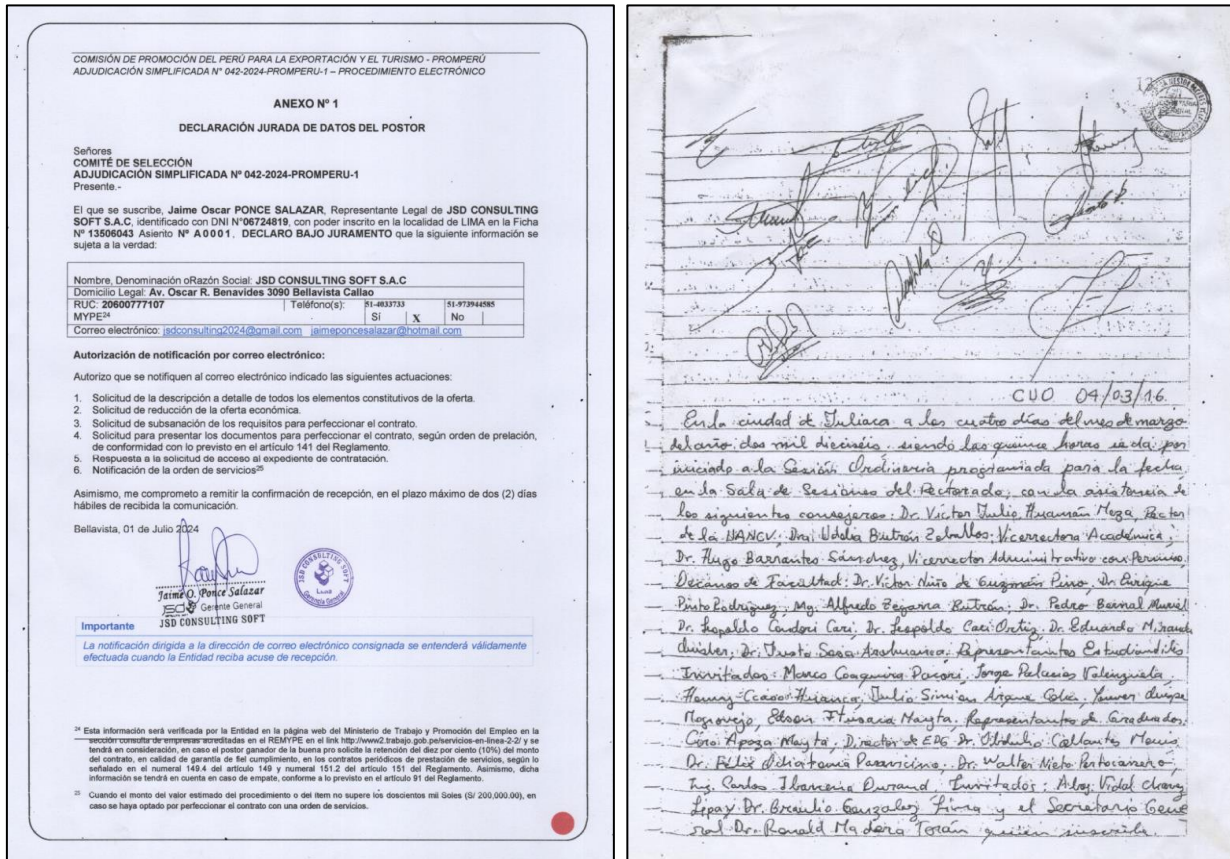 COMISIÓN DE PROMOCIÓN DEL PERÚ PARA LA EXPORTACIÓN Y EL TURISMO - PROMPERÚ
ADJUDICACIÓN SIMPLIFICADA N° 042-2024-PROMPERU-1 – PROCEDIMIENTO ELECTRÓNICO
ANEXO Nº 1
DECLARACIÓN JURADA DE DATOS DEL POSTOR
Señores
COMITÉ DE SELECCIÓN
ADJUDICACIÓN SIMPLIFICADA Nº 042-2024-PROMPERU-1
Presente.-
El que se suscribe, Jaime Oscar PONCE SALAZAR, Representante Legal de JSD CONSULTING
SOFT S.A.C, identificado con DNI N°06724819, con poder inscrito en la localidad de LIMA en la Ficha
Nº 13506043 Asiento Nº A0001, DECLARO BAJO JURAMENTO que la siguiente información se
sujeta a la verdad:
Nombre, Denominación oRazón Social: JSD CONSULTING SOFT S.A.C
Domicilio Legal: Av. Oscar R. Benavides 3090 Bellavista Callao
RUC: 20600777107 Teléfono(s): 51-4033733 51-973944585
MYPE24 Sí X No
Correo electrónico: jsdconsulting2024@gmail.com jaimeponcesalazar@hotmail.com
Autorización de notificación por correo electrónico:
Autorizo que se notifiquen al correo electrónico indicado las siguientes actuaciones:
1. Solicitud de la descripción a detalle de todos los elementos constitutivos de la oferta.
2. Solicitud de reducción de la oferta económica.
3. Solicitud de subsanación de los requisitos para perfeccionar el contrato.
4. Solicitud para presentar los documentos para perfeccionar el contrato, según orden de prelación,
de conformidad con lo previsto en el artículo 141 del Reglamento.
5. Respuesta a la solicitud de acceso al expediente de contratación.
6. Notificación de la orden de servicios25
Asimismo, me comprometo a remitir la confirmación de recepción, en el plazo máximo de dos (2) días
hábiles de recibida la comunicación.
Bellavista, 01 de Julio 2024
JSD CONSULTING SOFT
Gerencia General
Jaime O. Ponce Salazar
JSD Gerente General
JSD CONSULTING SOFT
Importante
La notificación dirigida a la dirección de correo electrónico consignada se entenderá válidamente
efectuada cuando la Entidad reciba acuse de recepción.
24 Esta información será verificada por la Entidad en la página web del Ministerio de Trabajo y Promoción del Empleo en la
sección consulta de empresas acreditadas en el REMYPE en el link http://www2.trabajo.gob.pe/servicios-en-linea-2-2/ y se
tendrá en consideración, en caso el postor ganador de la buena pro solicite la retención del diez por ciento (10%) del monto
del contrato, en calidad de garantía de fiel cumplimiento, en los contratos periódicos de prestación de servicios, según lo
señalado en el numeral 149.4 del artículo 149 y numeral 151.2 del artículo 151 del Reglamento. Asimismo, dicha
información se tendrá en cuenta en caso de empate, conforme a lo previsto en el artículo 91 del Reglamento.
25 Cuando el monto del valor estimado del procedimiento o del ítem no supere los doscientos mil Soles (S/ 200,000.00), en
caso se haya optado por perfeccionar el contrato con una orden de servicios.
CUO 04/03/16.
En la ciudad de Juliaca a los cuatro días del mes de marzo
del año dos mil dieciséis siendo las quince horas se da por
iniciado a la Sesión Ordinaria programada para la fecha
en la Sala de Sesiones del Rectorado, con la asistencia de
los siguientes consejeros: Dr. Victor Julio Huamán Meza, Rector
de la UANCV. Dra. Udelia Butrón Zeballos Vicerrectora Académica,
Dr. Hugo Barrantes Sánchez, Vicerrector Administrativo con Permiso,
Decanos de Facultad: Dr. Victor Niño de Guzmán Pino, Dr. Enrique
Pinto Rodriguez, Mg. Alfredo Zegarra Butrón, Dr. Pedro Bernal
Dr. Leopoldo Condori Cari, Dr. Leopoldo Cari Ortiz, Dr. Eduardo
Dr. Justo Sosa Representantes Estudiantiles
Invitados: Marco Coaquira Jorge Palacios Valenzuela,
Henry Ccaso Huanca, Julio Simion
Mogrovejo, Edson Mayta. Representantes de Graduados,
Apaza Mayta, Director de EPG Dr. Obdulio Collantes
Dr. Félix Dr. Walter Nieto Portocarrero,
Ing. Carlos Durand, Invitados: Abog. Vidal
Dr. Braulio Gonzalez y el Secretario Gene
ral Dr. Ronald Madera Terán quien suscribe.